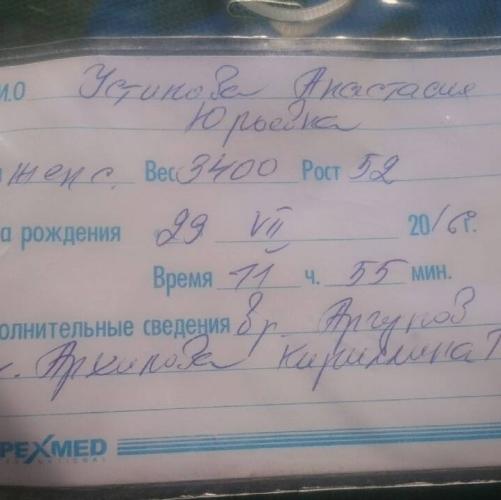 И.О Устинова Анастасия
Юрьевна
женс. Вес 3400 Рост 52
а рождения 29 VII 2016г.
Время 11 ч. 55 мин.
олнительные сведения вр. Аргунов
Архипова Кириллина Т
PEXMED